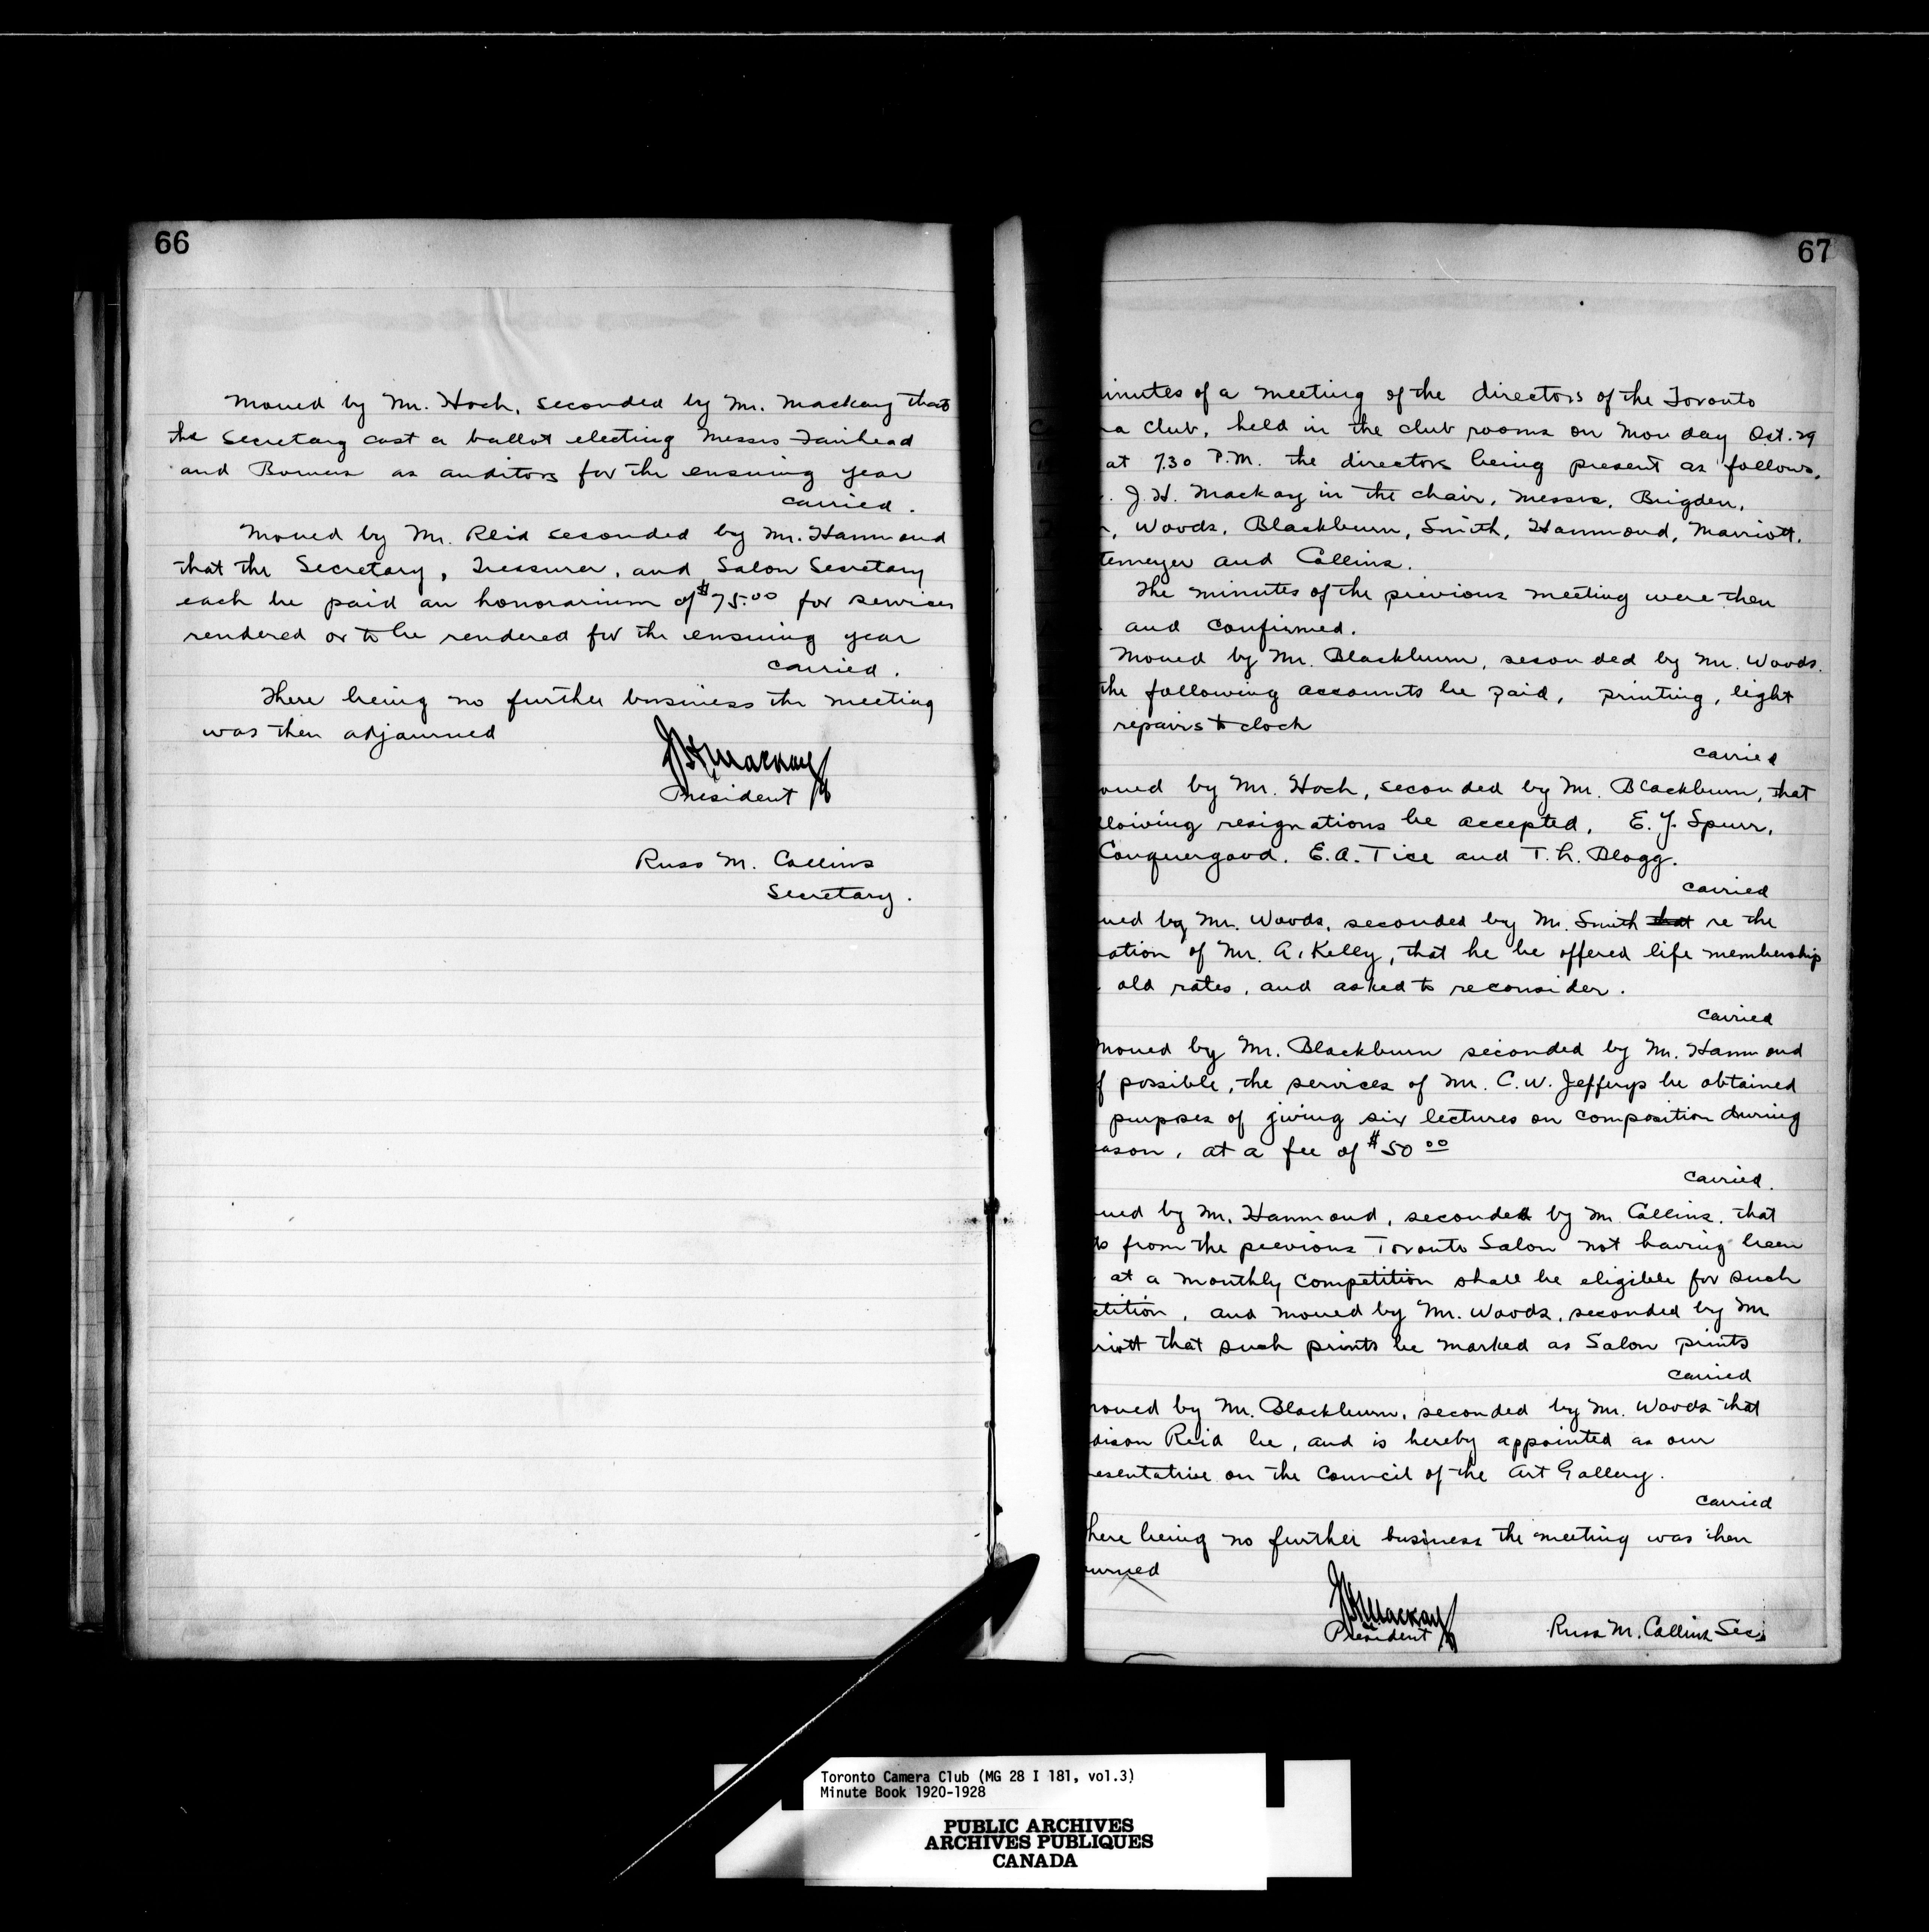 66
Moved by Mr. Hoch, seconded by Mr. Mackay that
the Secretary cast a ballot electing Messrs Fairhead
and Bowers as auditors for the ensuing year
carried.
Moved by Mr. Reid seconded by Mr. Hammond
that the Secretary, Treasurer, and Salon Secretary
each be paid an honorarium of $75.00 for services
rendered or to be rendered for the ensuing year
carried.
There being no further business the meeting
was then adjourned
J H Mackay
President
Russ M. Collins
Secretary.
67
inutes of a meeting of the directors of the Toronto
ra Club, held in the club rooms on Monday Oct. 29
at 7.30 P.M. the directors being present as follows.
. J. H. Mackay in the chair, Messrs. Brigden,
, Woods, Blackburn, Smith, Hammond, Marriott,
temeyer and Collins.
The minutes of the previous meeting were then
and confirmed.
Moved by Mr. Blackburn, seconded by Mr. Woods.
the following accounts be paid, printing, light
repairs to clock
carried
oved by Mr. Hoch, seconded by Mr. Blackburn, that
llowing resignations be accepted, E. J. Spurr,
Conquergood. E. A. Tice and T. H. Blogg.
carried
ved by Mr. Woods, seconded by Mr. Smith that re the
ation of Mr. A. Kelly, that he be offered life membership
old rates, and asked to reconsider.
carried
Moved by Mr. Blackburn seconded by Mr. Hammond
f possible, the services of Mr. C. W. Jefferys be obtained
purposes of giving six lectures on composition during
eason, at a fee of $50 00
carried.
ved by Mr. Hammond, seconded by Mr. Collins. that
ts from the previous Toronto Salon not having been
at a monthly competition shall be eligible for such
etition, and moved by Mr. Woods, seconded by Mr
riott that such prints be marked as Salon prints
carried
oved by Mr. Blackburn, seconded by Mr. Woods that
dison Reid be, and is hereby appointed as our
esentative on the Council of the Art Gallery.
carried
here being no further business the meeting was then
urned
J H Mackay
President
Russ M. Collins Sec.
Toronto Camera Club (MG 28 I 181, vol.3)
Minute Book 1920-1928
PUBLIC ARCHIVES
ARCHIVES PUBLIQUES
CANADA